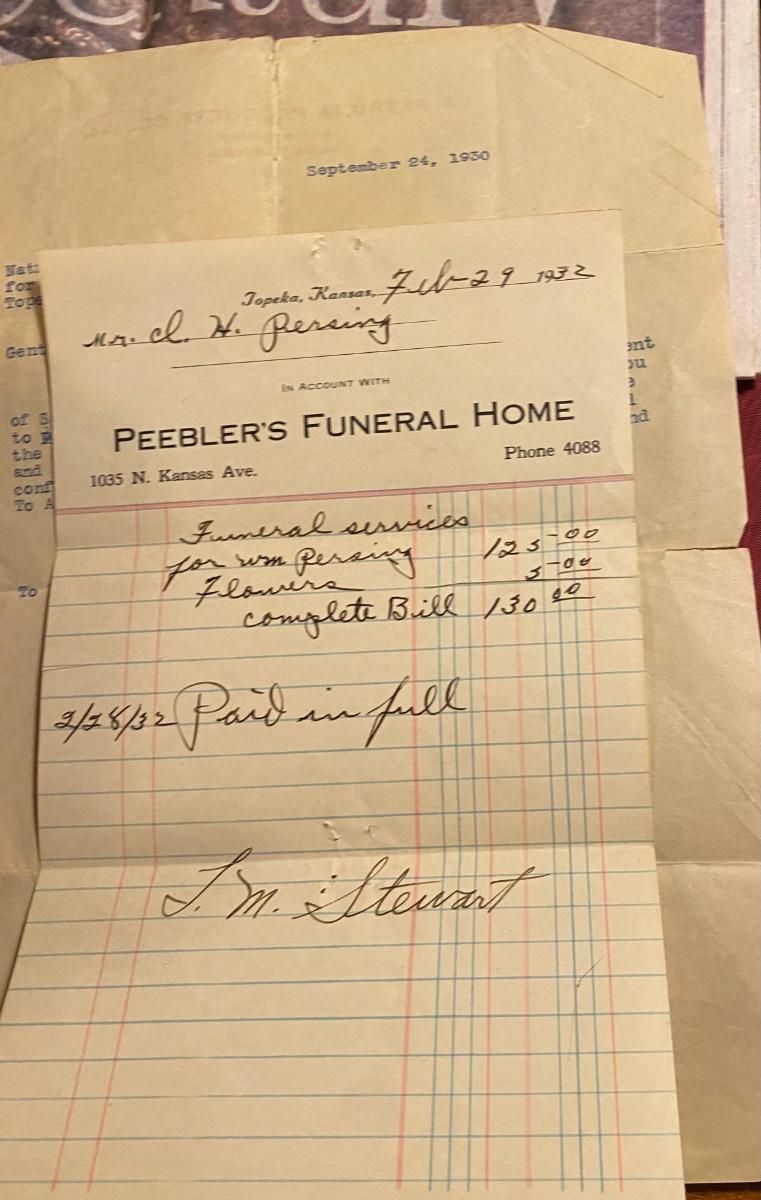 September 24, 1930
for
Gent
of S
to
the
and
conf
To A
To
ent
ou
nd
Topeka, Kansas, Feb-29 1932
Mr. H. Persing
IN ACCOUNT WITH
PEEBLER'S FUNERAL HOME
1035 N. Kansas Ave.
Phone 4088
Funeral services
for wm Persing 125-00
Flowers 5-00
complete Bill 130 00
2/28/32 Paid in full
M. Stewart